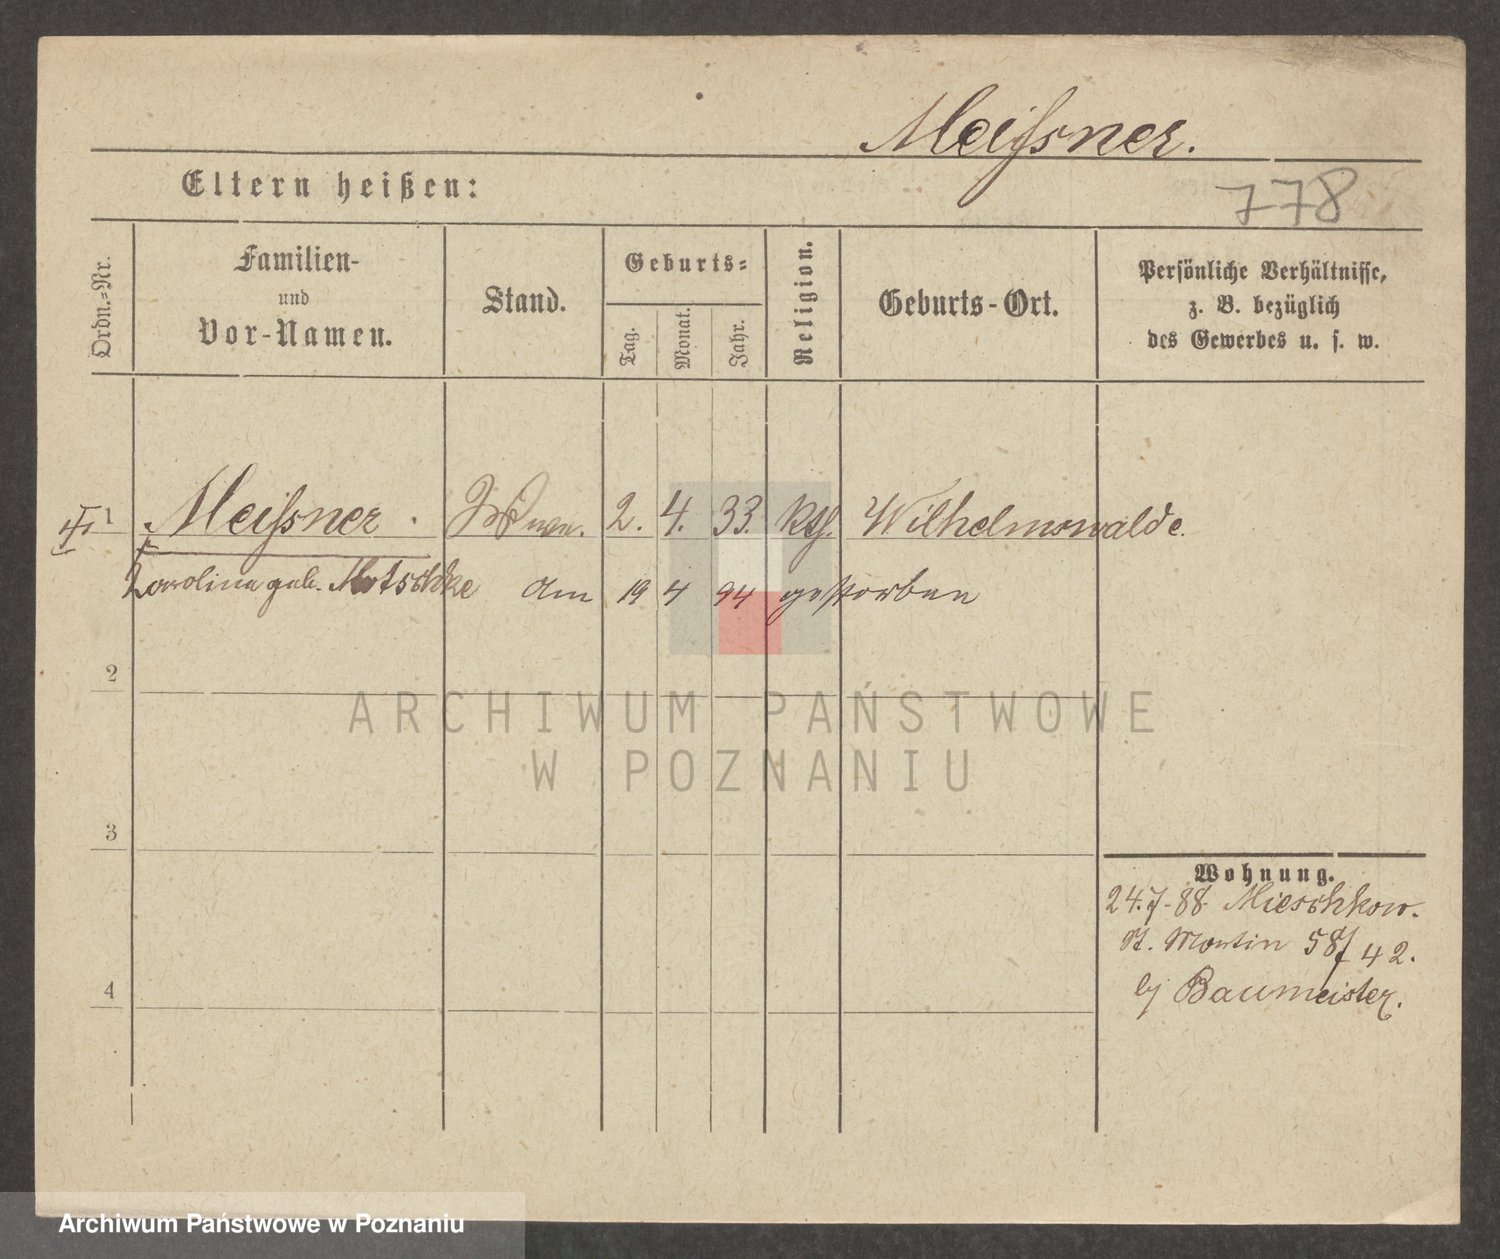 Meißner.
Eltern heißen:
778
Ordn.-Nr.
Familien-
und
Vor-Namen.
Stand.
Geburts-
Tag.
Monat.
Jahr.
Religion.
Geburts-Ort.
Persönliche Verhältnisse,
z. B. bezüglich
des Gewerbes u. s. w.
1 Meißner. 2. 4. 33. kth. Wilhelmswalde.
Karolina geb. am 19 4 94 gestorben
2
ARCHIWUM PAŃSTWOWE
W POZNANIU
3
Wohnung.
24.7.88 Mieschkow.
St. Martin 58/42.
by Baumeister.
4
Archiwum Państwowe w Poznaniu